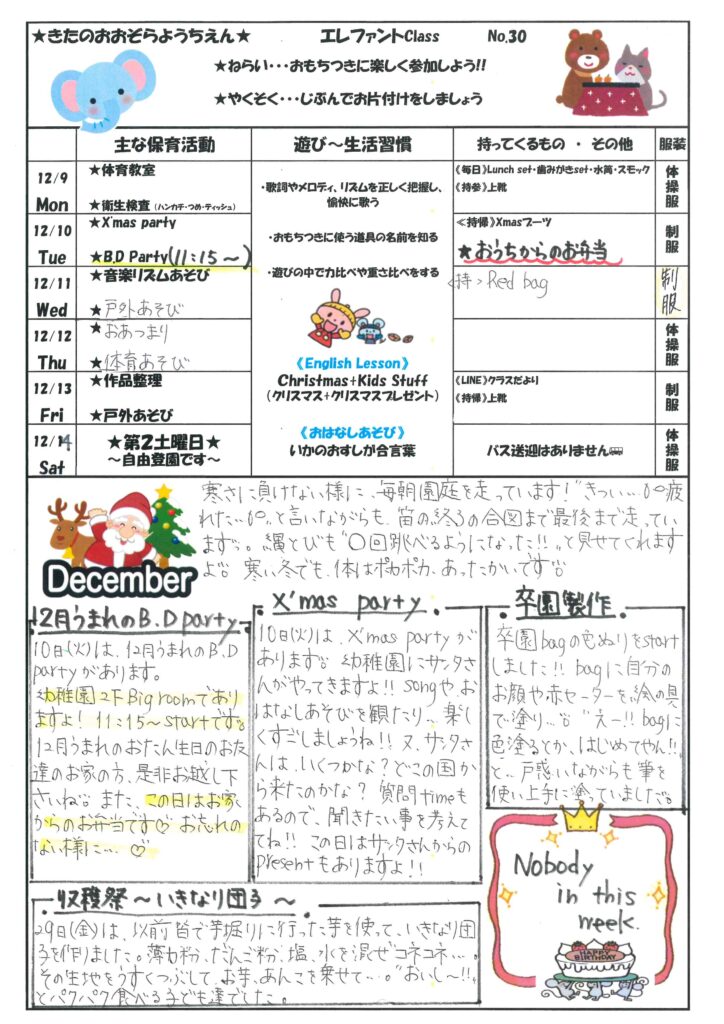 ★きたのおおぞらようちえん★ エレファントClass No.30
★ねらい・・・おもちつきに楽しく参加しよう!!
★やくそく・・・じぶんでお片付けをしましょう
主な保育活動 遊び～生活習慣 持ってくるもの ・ その他 服装
12/9 Mon
★体育教室
★衛生検査（ハンカチ・つめ・ティッシュ）
《毎日》Lunch set・歯みがきset・水筒・スモック
《持参》上靴
体操服
12/10 Tue
★X'mas party
★B.D Party(11:15～)
≪持帰》Xmasブーツ
★おうちからのお弁当
制服
12/11 Wed
★音楽リズムあそび
★戸外あそび
<持> Red bag
制服
12/12 Thu
★おあつまり
★体育あそび
体操服
12/13 Fri
★作品整理
★戸外あそび
《LINE》クラスだより
《持帰》上靴
制服
12/14 Sat
★第2土曜日★
～自由登園です～
バス送迎はありません
体操服
・歌詞やメロディ、リズムを正しく把握し、
愉快に歌う
・おもちつきに使う道具の名前を知る
・遊びの中で力比べや重さ比べをする
《English Lesson》
Christmas+Kids Stuff
（クリスマス+クリスマスプレゼント）
《おはなしあそび》
いかのおすしが合言葉
December
寒さに負けない様に、毎朝園庭を走っています!"きつい…疲
れた…"と言いながらも、笛の終るの合図まで最後まで走ってい
ます。縄とびも"〇回跳べるようになった!!"と見せてくれます
よ 寒い冬でも、体はポカポカ、あったかいです
12月うまれのB.D party
10日(火)は、12月うまれのB.D
partyがあります。
幼稚園2F Big roomであり
ますよ! 11:15～startです。
12月うまれのおたん生日のお友
達のお家の方、是非お越し下
さいね また、この日はお家
からのお弁当です♡ お忘れの
ない様に…♡
X'mas party
10日(火)は、X'mas partyが
あります 幼稚園にサンタさ
んがやってきますよ!! songやお
はなしあそびを観たり、楽し
くすごしましょうね!! 又、サンタさ
んは、いくつかな? どこの国から
来たのかな? 質問timeも
あるので、聞きたい事を考えて
てね!! この日はサンタさんからの
presentもありますよ!!
卒園製作
卒園bagの色ぬりをstart
しました!! bagに自分の
お顔や赤セーターを絵の具
で塗り… "えー!! bagに
色塗るとか、はじめてやん!!"
と、戸惑いながらも筆を
使い上手に塗っていました。
収穫祭～いきなり団子～
29日(金)は、以前皆で芋掘りに行った芋を使って、いきなり団
子を作りました。薄力粉、だんご粉、塩、水を混ぜ"コネコネ…。
その生地をうすくつぶして、お芋、あんこを乗せて…。"おいし～!!"
とパクパク食べる子ども達でした。
Nobody
in this
week.
HAPPY
BIRTHDAY